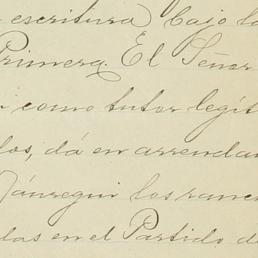 escritura bajo la
Primera. El Señor
como tutor legít
los, dá en arrendam
Jáuregui los ranch
das en el Partido de